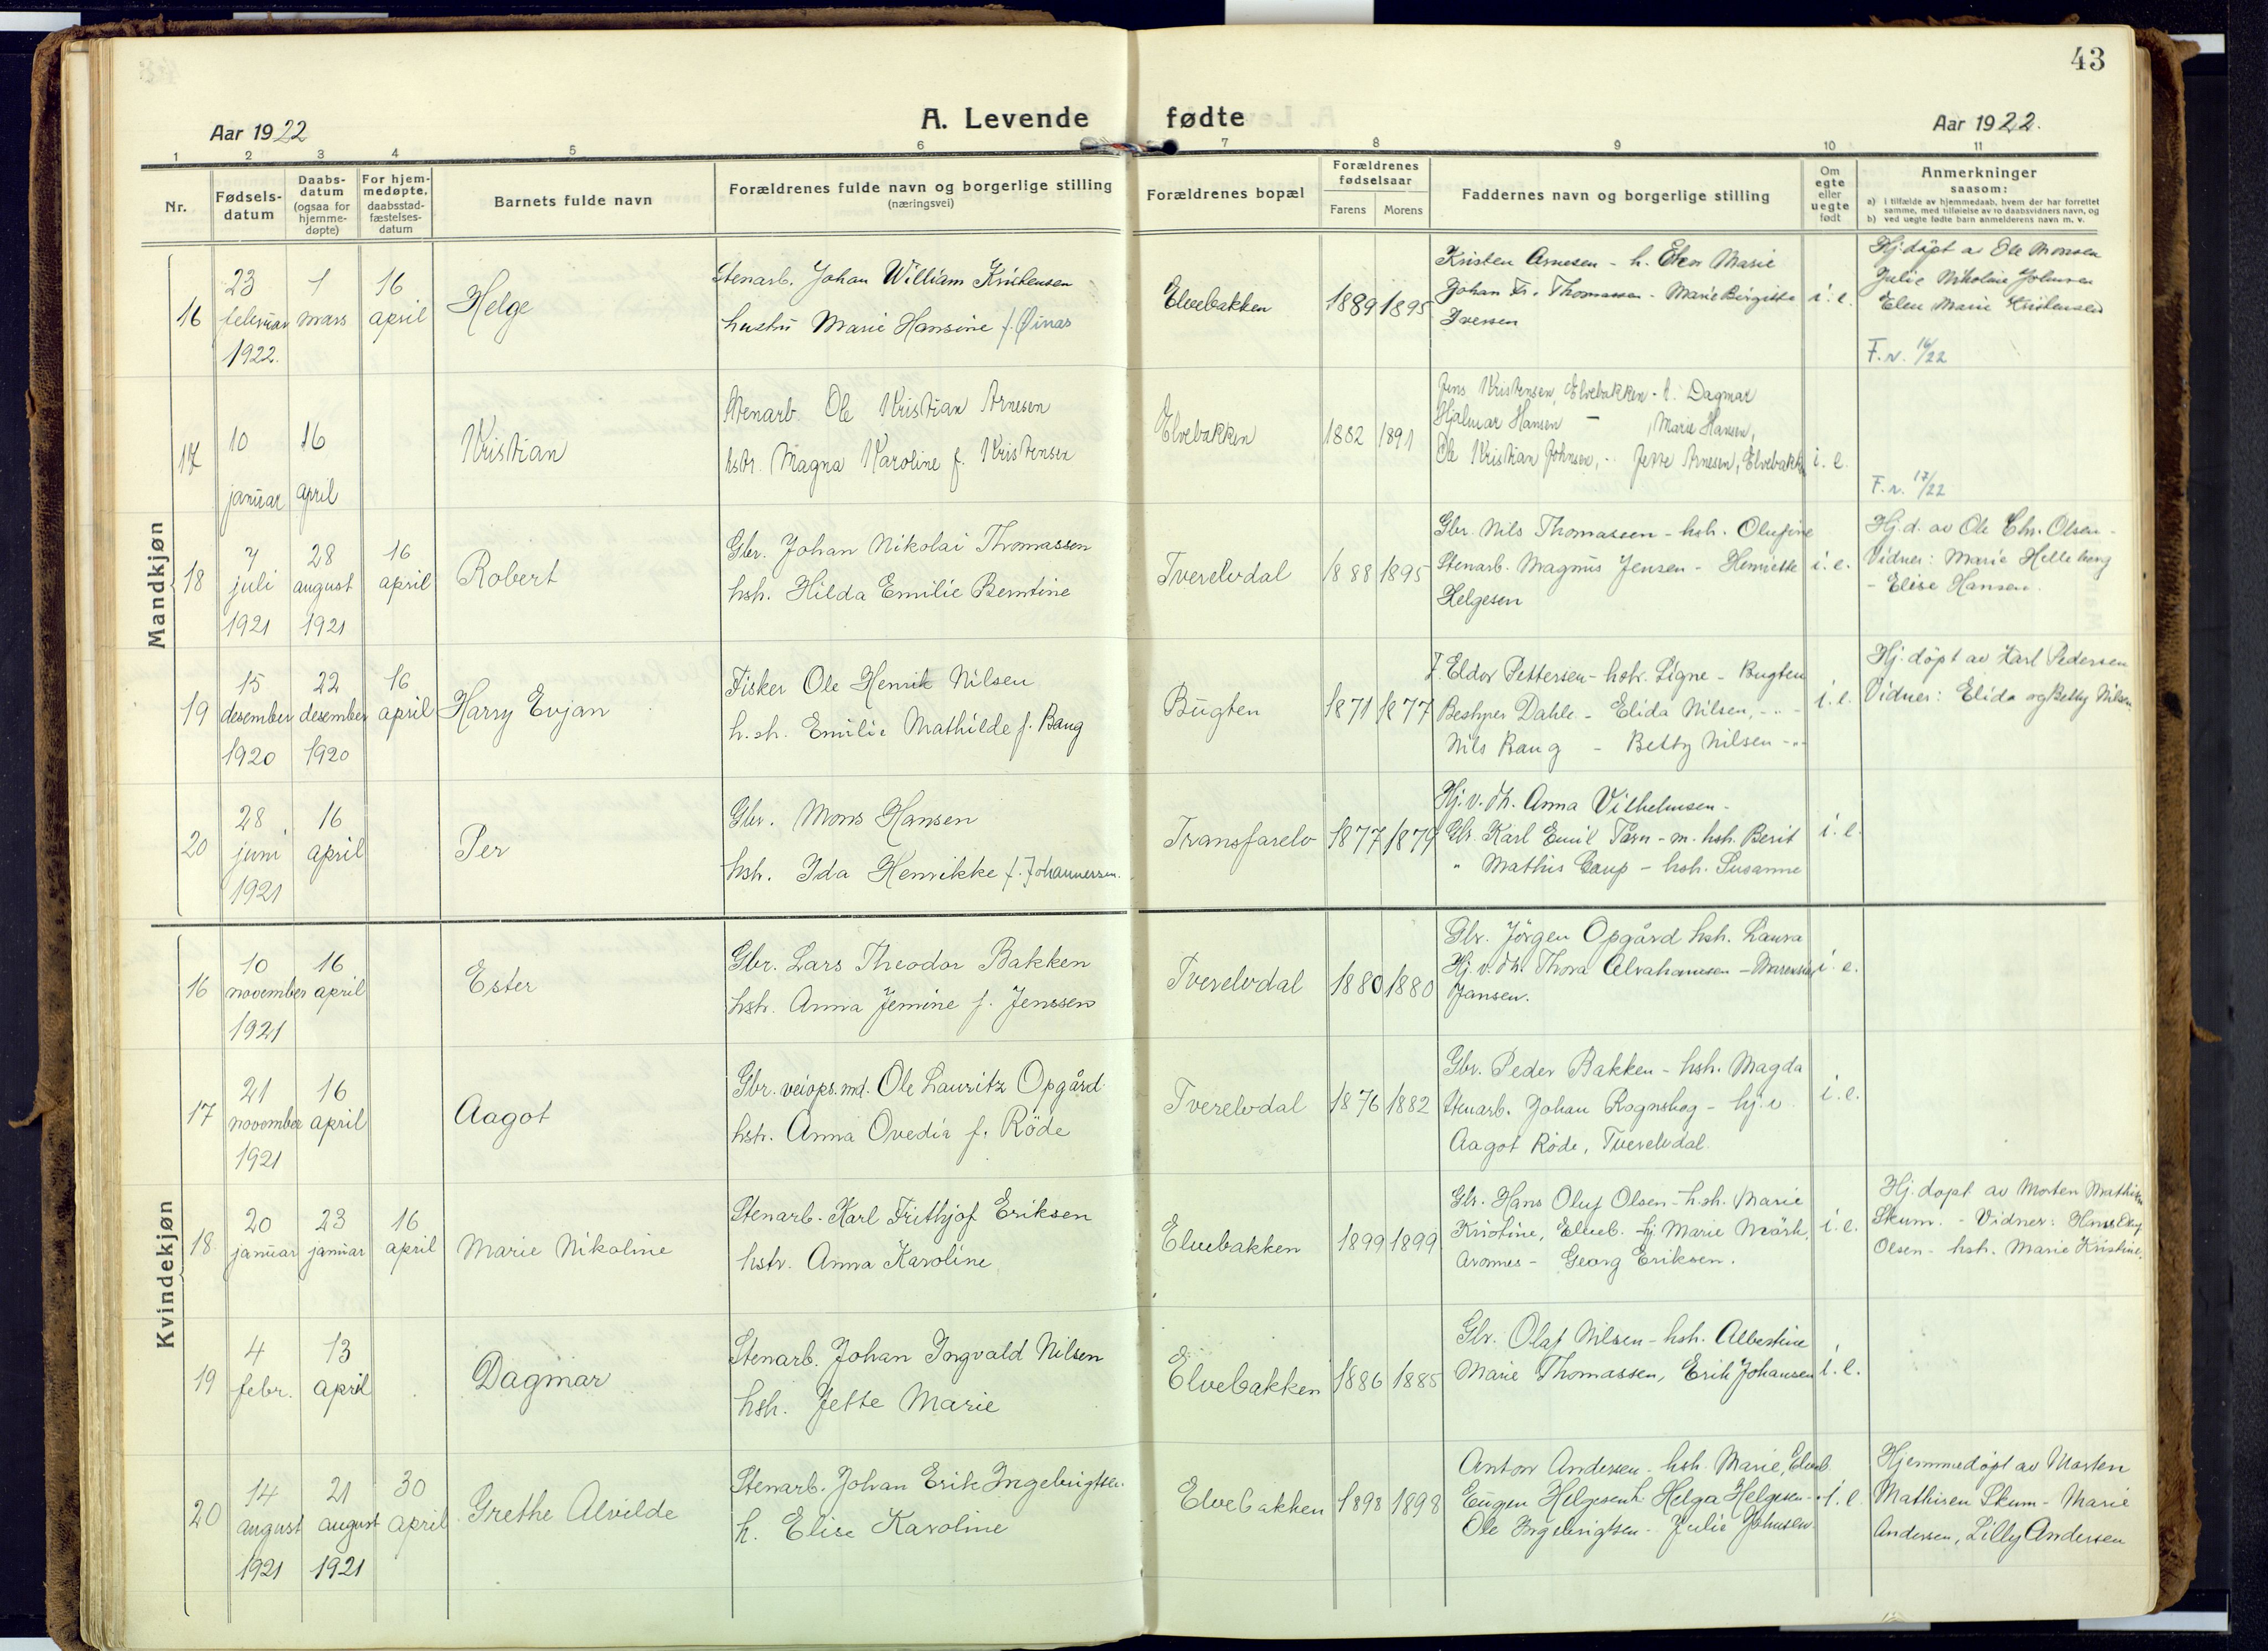 43
A. Levende fødte
Aar 1922
Aar 1922.
1 2 3 4 5 6 7 8 9 10 11
Nr.
Fødsels-
datum
Daabs-
datum
(ogsaa for
hjemme-
døpte)
For hjem-
medøpte.
daabsstad-
fæstelses-
datum
Barnets fulde navn
Forældrenes fulde navn og borgerlige stilling
(næringsvei)
Forældrenes bopæl
Forældrenes
fødselsaar
Farens Morens
Faddernes navn og borgerlige stilling
Om
egte
eller
uegte
født
Anmerkninger
saasom:
a) i tilfælde av hjemmedaab, hvem der har forrettet
samme, med tilføielse av to daabsvidners navn, og
b) ved uegte fødte barn anmelderens navn m. v.
Mandkjøn
16
23
februar
1922.
1
mars
16
april
Helge
Stenarb. Johan William Kristensen
hustru Marie Hansine f. Øinas
Elvebakken
1889 1895
Kristen Arnesen - h. Elen Marie
Johan Fr. Thomassen - Marie Birgitte
Iversen
i. e.
Hj. døpt av Ole Monsen
Julie Nikoline Johnsen
Elen Marie Kristensen
F. r. 16/22
17
10
januar
16
april
Kristian
Stenarb. Ole Kristian Arnesen
hstr. Magna Karoline f. Kristensen
Elvebakken
1882 1891
Jens Kristensen, Elvebakken - h. Dagmar
Hjalmar Hansen - Marie Hansen,
Ole Kristian Johnsen, - Jette Arnesen, Elvebakk
i. e.
F. r. 17/22
18
7
juli
1921
28
august
1921
16
april
Robert
Gbr. Johan Nikolai Thomassen
hsh. Hilda Emilie Berntine
Tverelvdal
1888 1895
Gbr. Nils Thomassen - hsh. Olufine
Stenarb. Magnus Jensen - Henriette
Helgesen
i. e.
Hj. d. av Ole Chr. Olsen -
Vidner: Marie Helleberg
- Elise Hansen.
19
15
desember
1920
22
desember
1920
16
april
Harry Evjan
Fisker Ole Henrik Nilsen
h. sh. Emilie Mathilde f. Baug
Bugten
1871 1877
F. Eldor Pettersen - hstr. Signe - Bugten
Bestyrer Dahle - Elida Nilsen, - " -
Nils Baug - Betty Nilsen - " -
i. e.
Hj. døpt av Karl Pedersen
Vidner: Elida og Betty Nilsen.
20
28
juni
1921
16
april
Per
Gbr. Mons Hansen
hsh. Ida Henrikke f. Johannessen.
Transfarelv
1877 1879
Hj. v. dh. Anna Vilhelmsen -
Gbr. Karl Emil Tarn - m. hsh. Berit
" Mathis Gaup - hsh. Susanne
i. e.
Kvindekjøn
16
10
november
1921
16
april
Ester
Gbr. Lars Theodor Bakken
hstr. Anna Jemine f. Jenssen
Tverelvdal
1880 1880
Gbr. Jörgen Opgård hsh. Laura
Hj. v. dh. Thora Abrahamsen -
Jansen.
i. e.
17
21
november
1921
16
april
Aagot
Gbr. veiops.md. Ole Lauritz Opgård
hstr. Anna Ovedia f. Röde
Tverelvdal
1876 1882
Gbr. Peder Bakken - hsh. Magda
Stenarb. Johan Rognskog - hj. v.
Aagot Röde, Tverelvdal.
i. e.
18
20
januar
23
januar
16
april
Marie Nikoline
Stenarb. Karl Frithjof Eriksen
hstr. Anna Karoline
Elvebakken
1899 1899
Gbr. Hans Oluf Olsen - h.sh. Marie
Kristine, Elveb. - hj. Marie Mörk,
Aronnes - Georg Eriksen.
i. e.
Hj. døpt av Morten Mathisen
Skum. - Vidner: Hans Oluf
Olsen - hstr. Marie Kristine.
19
4
febr.
13
april
Dagmar
Stenarb. Johan Ingvald Nilsen
hsh. Jette Marie
Elvebakken
1886 1885
Gbr. Olaf Nilsen - hsh. Albertine
Marie Thomassen, Erik Johansen
i. e.
20
14
august
1921
21
august
1921
30
april
Grethe Alvilde
Stenarb. Johan Erik Ingebrigtsen.
h. Elise Karoline
Elvebakken
1898 1898
Anton Andersen - hsh. Marie, Elveb.
Eugen Helgesen h. Helga Helgesen -
Ole Ingebrigtsen - Julie Johnsen.
i. e.
Hjemmedøpt av Morten
Mathisen Skum - Marie
Andersen, Lilly Andersen